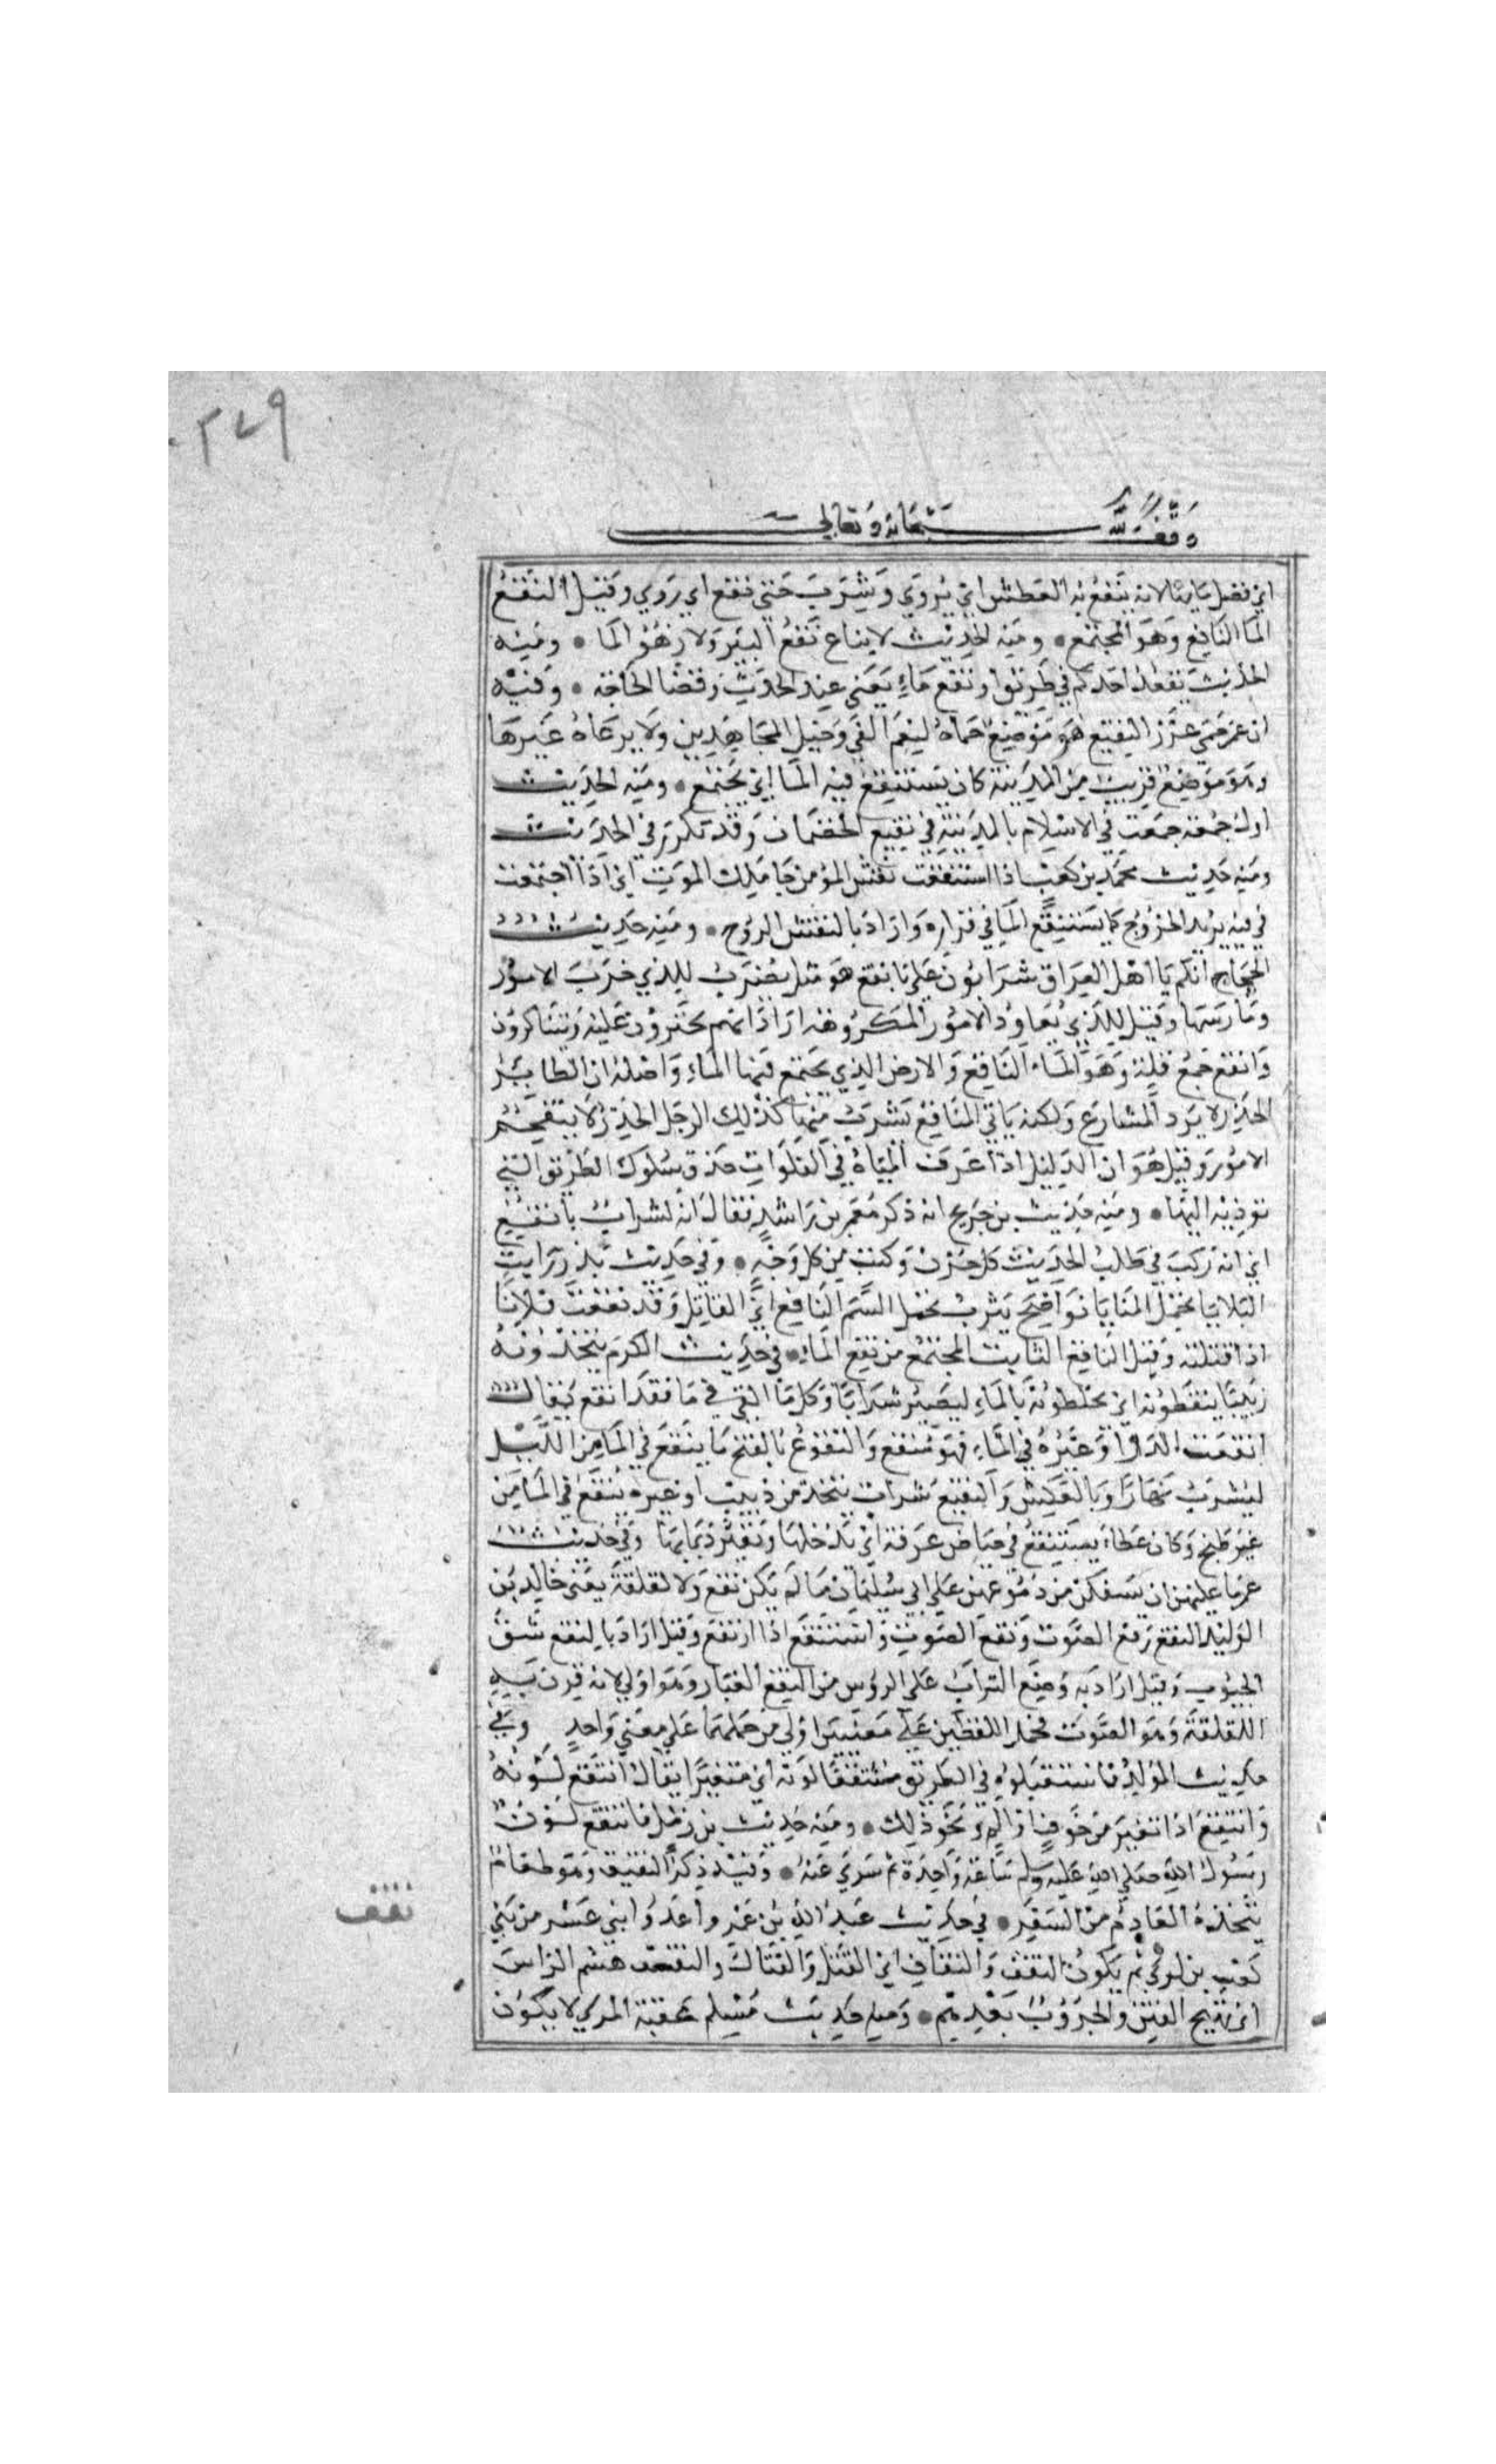 ٣٧٩
وقف لله سبحانه وتعالى
اي فضل مايها لانه ينقع به العطش اي يروي وشرب حتي نقع اي روي وقيل النقع
الما الناقع وهو المجتمع ومنه الحديث لا يباع نقع البير ولا رهو الما ومنه
الحديث يقعد احدكم في طريق او نقع ماء يعني عند الحدث وقضا الحاجة وفيه
ان عمر حمي غرز النقيع هو موضع حماه لنعم الفي وخيل المجاهدين ولا يرعاه غيرها
وهو موضع قريب من المدينة كان يستنقع فيه الما اي يجتمع ومنه الحديث
اول جمعة جمعت في الاسلام بالمدينة في نقيع الخضمات وقد تكرر في الحديث
ومنه حديث محمد بن كعب اذا استنقعت نفس المؤمن جا ملك الموت اي اذا اجتمعت
في فيه يريد الخروج كما يستنقع الما في قراره واراد بالنفس الروح ومنه حديث
الحجاج انكم يا اهل العراق شرابون علي بانقع هو مثل يضرب للذي جرب الامور
ومارسها وقيل للذي يعاود الامور المكروهة اراد انهم يجترؤن عليه ويتناكرون
وانقع جمع قلة وهو الماء الناقع والارض الذي يجتمع فيها الماء واصله ان الطاير
الحذر لا يرد المشارع ولكنه ياتي المناقع يشرب منها كذلك الرجل الحذر لا يتقحم
الامور وقيل هو ان الدليل اذا عرف المياه في الفلوات حذق سلوك الطريق التي
توديه اليها ومنه حديث بن جريج انه ذكر معمر بن راشد فقال انه لشراب بانقع
اي انه ركب في طلب الحديث كل حزن وكتب من كل وجه وفي حديث بدر رايت
البلايا تحمل المنايا نواضح يثرب تحمل السم الناقع اي القاتل وقد نقعت فلانا
اذا قتلته وقيل الناقع الثابت المجتمع من نقع الماء في حديث الكرم يتخذونه
زبيبا ينقعونه اي يخلطونه بالماء ليصير شرابا وكل ما القي في ما فقد انقع يقال
انقعت الدوا وغيره في الماء فهو منقع والنقوع بالفتح ما ينقع في الما من الليل
ليشرب نهارا وبالعكس والنقيع شراب يتخذ من زبيب او غيره ينقع في الما من
غير طبخ وكان عطاء يستنقع في حياض عرفة اي يدخلها ويتبرد بمايها وفي حديث
عمر ما عليهن ان يسفكن من دموعهن علي ابي سليمان ما لم يكن نقع ولا لقلقة يعني خالد بن
الوليد النقع رفع الصوت ونقع الصوت واستنقع اذا ارتفع وقيل اراد بالنقع شق
الجيوب وقيل اراد به وضع التراب علي الرؤس من النقع الغبار وهو اولي لانه قرن به
اللقلقة وهو الصوت فحمل اللفظين علي معنيين اولي من حملهما علي معني واحد وفي
حديث المولد فاستقبلوه في الطريق منتقعا لونه اي متغيرا يقال انتقع لونه
وانتيقع اذا تغير من خوف او الم ونحو ذلك ومنه حديث بن زمل فانتقع لون
رسول الله صلي الله عليه وسلم ساعة واحدة ثم سري عنه وفيه ذكر النقيعة وهو طعام
يتخذه القادم من السفر في حديث عبد الله بن عمر واعدد اثني عشر من بني
كعب بن لوي ثم يكون النقف والنقاف اي القتل والقتال والنقف هشم الراس
اي تهيج الفتن والحروب بعدهم ومنه حديث مسلم بن عقبة المري لا يكون
نقف